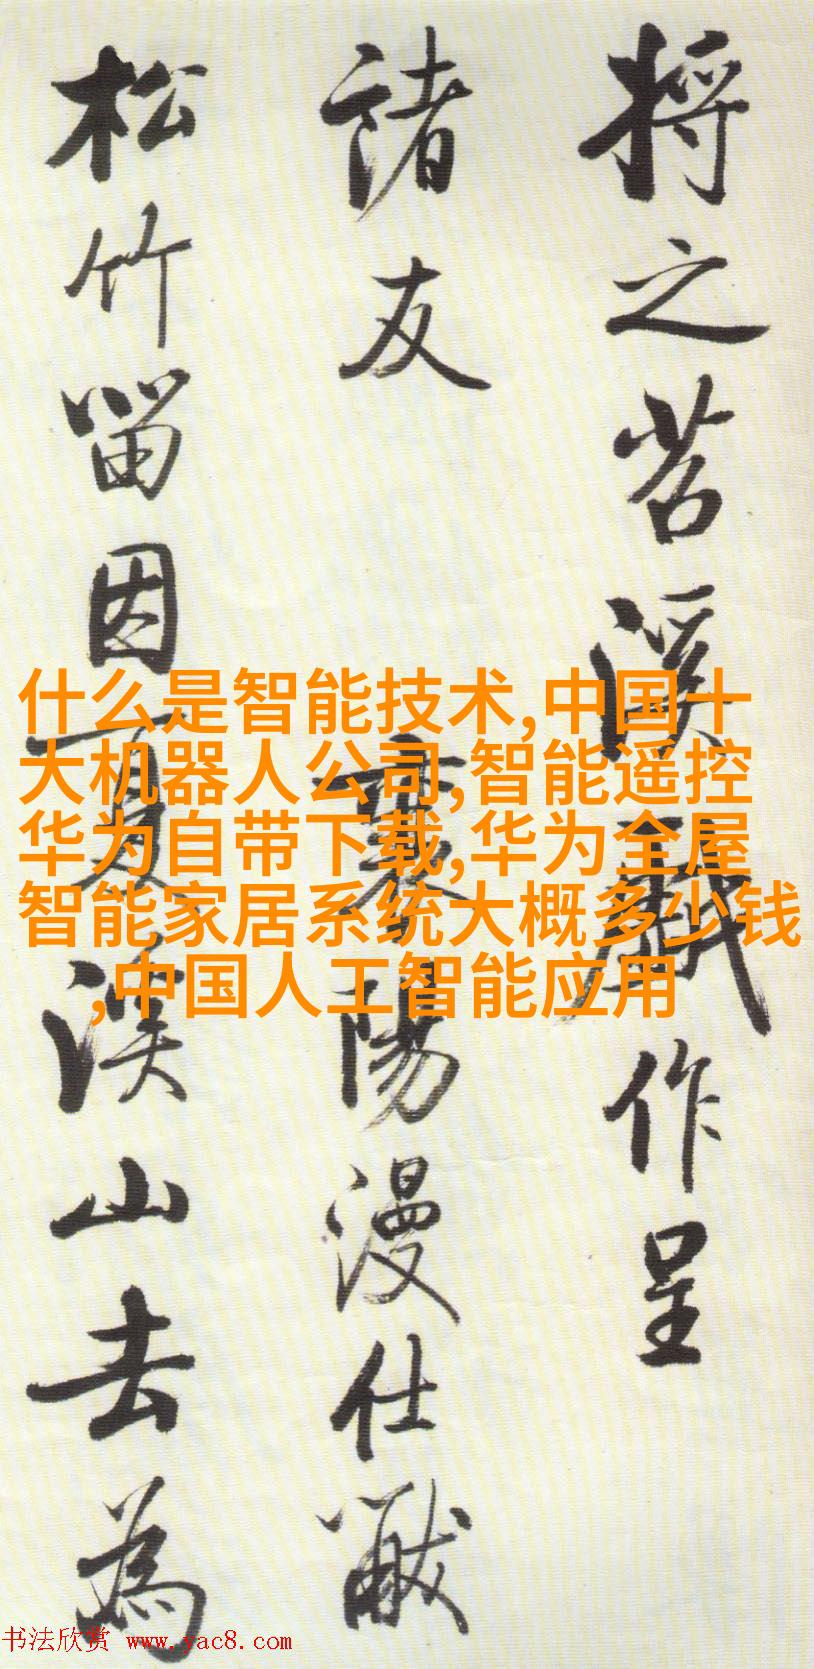 将之苕溪戲作呈
諸友
襄陽漫仕黻
松竹留因夏溪山去為
什么是智能技术,中国十
大机器人公司,智能遥控
华为自带下载,华为全屋
智能家居系统大概多少钱
,中国人工智能应用
书法欣赏 www.yac8.com